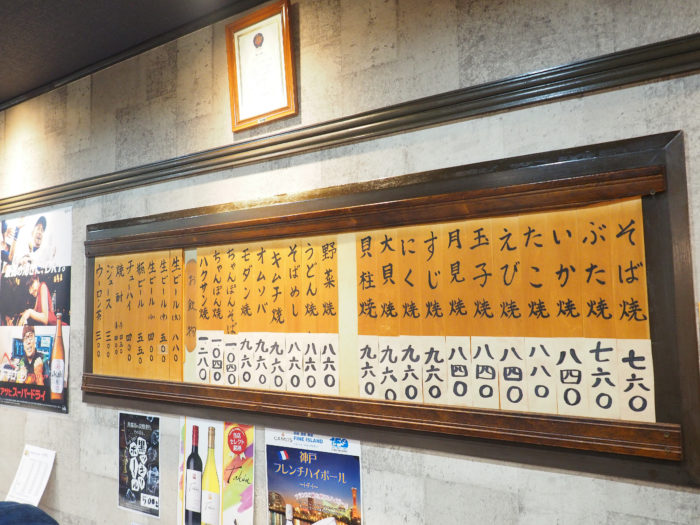 そば焼 七六〇
ぶた焼 七六〇
いか焼 八四〇
たこ焼 八八〇
えび焼 八四〇
玉子焼 八四〇
月見焼 八四〇
すじ焼 九六〇
にく焼 九六〇
大貝焼 九六〇
貝柱焼 九六〇
野菜焼 八六〇
うどん焼 八六〇
そばめし 八六〇
キムチ焼 九六〇
オムソバ 九六〇
モダン焼 九六〇
ちゃんぽんそば 一〇四〇
ちゃんぽん焼 一〇四〇
ハクサン焼
お飲物
生ビール(大) 八八〇
生ビール(中) 五五〇
生ビール(小) 四〇〇
瓶ビール 五五〇
チューハイ 四〇〇
焼酎 四五〇
ジュース 三〇〇
ウーロン茶 三〇〇
アサヒスーパードライ
500
当店
セレクト
FINE ISLAND
神戸
フレンチハイボール